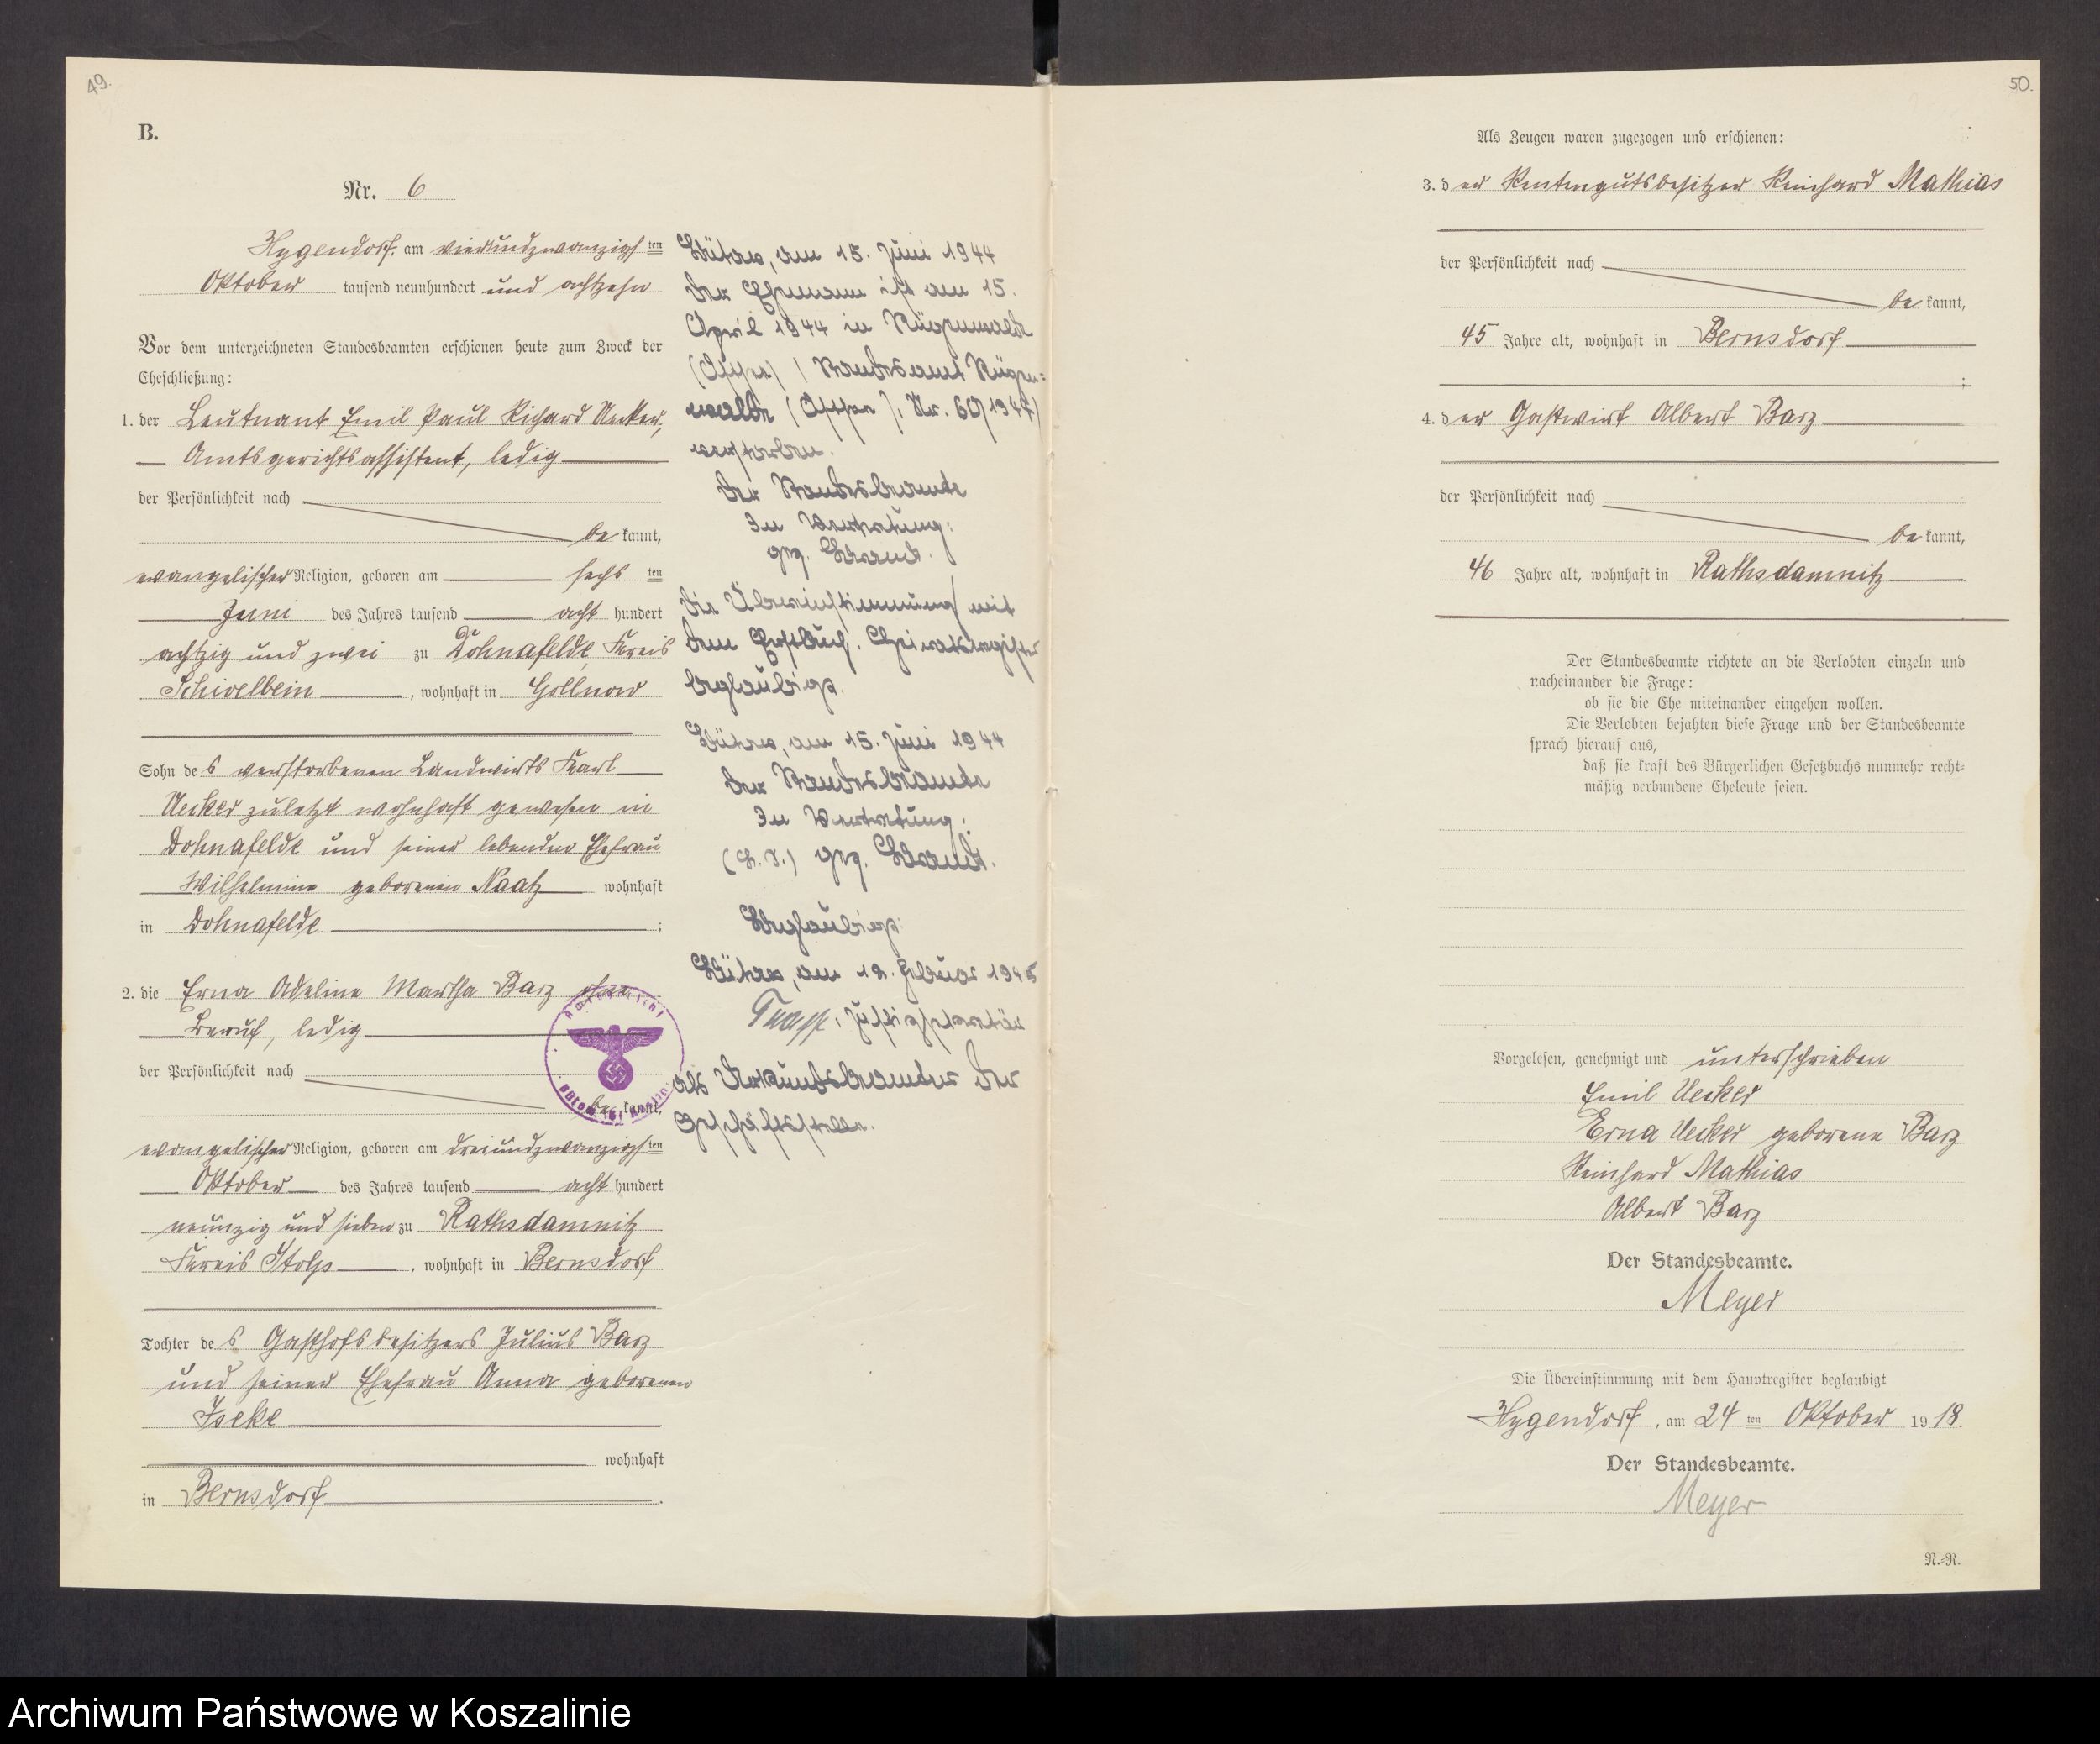 49.
B.
Nr. 6
Hygendorf. am vierundzwanzigsten
Oktober tausend neunhundert und achtzehn
Vor dem unterzeichneten Standesbeamten erschienen heute zum Zweck der
Eheschließung:
1. der Leutnant Emil Paul Richard Uecker,
Amtsgerichtsassistent, ledig
der Persönlichkeit nach
be kannt,
evangelischer Religion, geboren am sechs ten
Juni des Jahres tausend acht hundert
achtzig und zwei zu Dohnafelde, Kreis
Schivelbein, wohnhaft in Gollnow
Sohn des verstorbenen Landwirts Karl
Uecker zuletzt wohnhaft gewesen in
Dohnafelde und seiner lebenden Ehefrau
Wilhelmine geborenen Naatz wohnhaft
in Dohnafelde ;
2. die Erna Adeline Martha Barz ohne
Beruf, ledig
der Persönlichkeit nach
be kannt,
evangelischer Religion, geboren am dreiundzwanzigsten
Oktober des Jahres tausend acht hundert
neunzig und sieben zu Rathsdamnitz
Kreis Stolp, wohnhaft in Bernsdorf
Tochter des Gasthofsbesitzers Julius Barz
und seiner Ehefrau Anna geborenen
Iseke
wohnhaft
in Bernsdorf.
Bütow, am 15. Juni 1944
Der Ehemann ist am 15.
April 1944 in Rügenwalde
(Ostsee) (Standesamt Rügen=
walde (Ostsee), Nr. 60/1944)
verstorben.
Der Standesbeamte
In Vertretung:
gez.
Die Übereinstimmung mit
dem Erstbuch. Heiratsregister
beglaubigt.
Bütow, am 15. Juni 1944
Der Standesbeamte
In Vertretung:
(L. S.) gez.
Beglaubigt:
Bütow, am 12. Februar 1945
Justizsekretär
als Urkundsbeamter der
Geschäftsstelle.
50.
Als Zeugen waren zugezogen und erschienen:
3. der Rentengutsbesitzer Reinhard Mathias
der Persönlichkeit nach
be kannt,
45 Jahre alt, wohnhaft in Bernsdorf
;
4. der Gastwirt Albert Barz
der Persönlichkeit nach
be kannt,
46 Jahre alt, wohnhaft in Rathsdamnitz
Der Standesbeamte richtete an die Verlobten einzeln und
nacheinander die Frage:
ob sie die Ehe miteinander eingehen wollen.
Die Verlobten bejahten diese Frage und der Standesbeamte
sprach hierauf aus,
daß sie kraft des Bürgerlichen Gesetzbuchs nunmehr recht=
mäßig verbundene Eheleute seien.
Vorgelesen, genehmigt und unterschrieben
Emil Uecker
Erna Uecker geborene Barz
Reinhard Mathias
Albert Barz
Der Standesbeamte.
Meyer
Die Übereinstimmung mit dem Hauptregister beglaubigt
Hygendorf, am 24 ten Oktober 19 18.
Der Standesbeamte.
Meyer
N.=R.
Archiwum Państwowe w Koszalinie